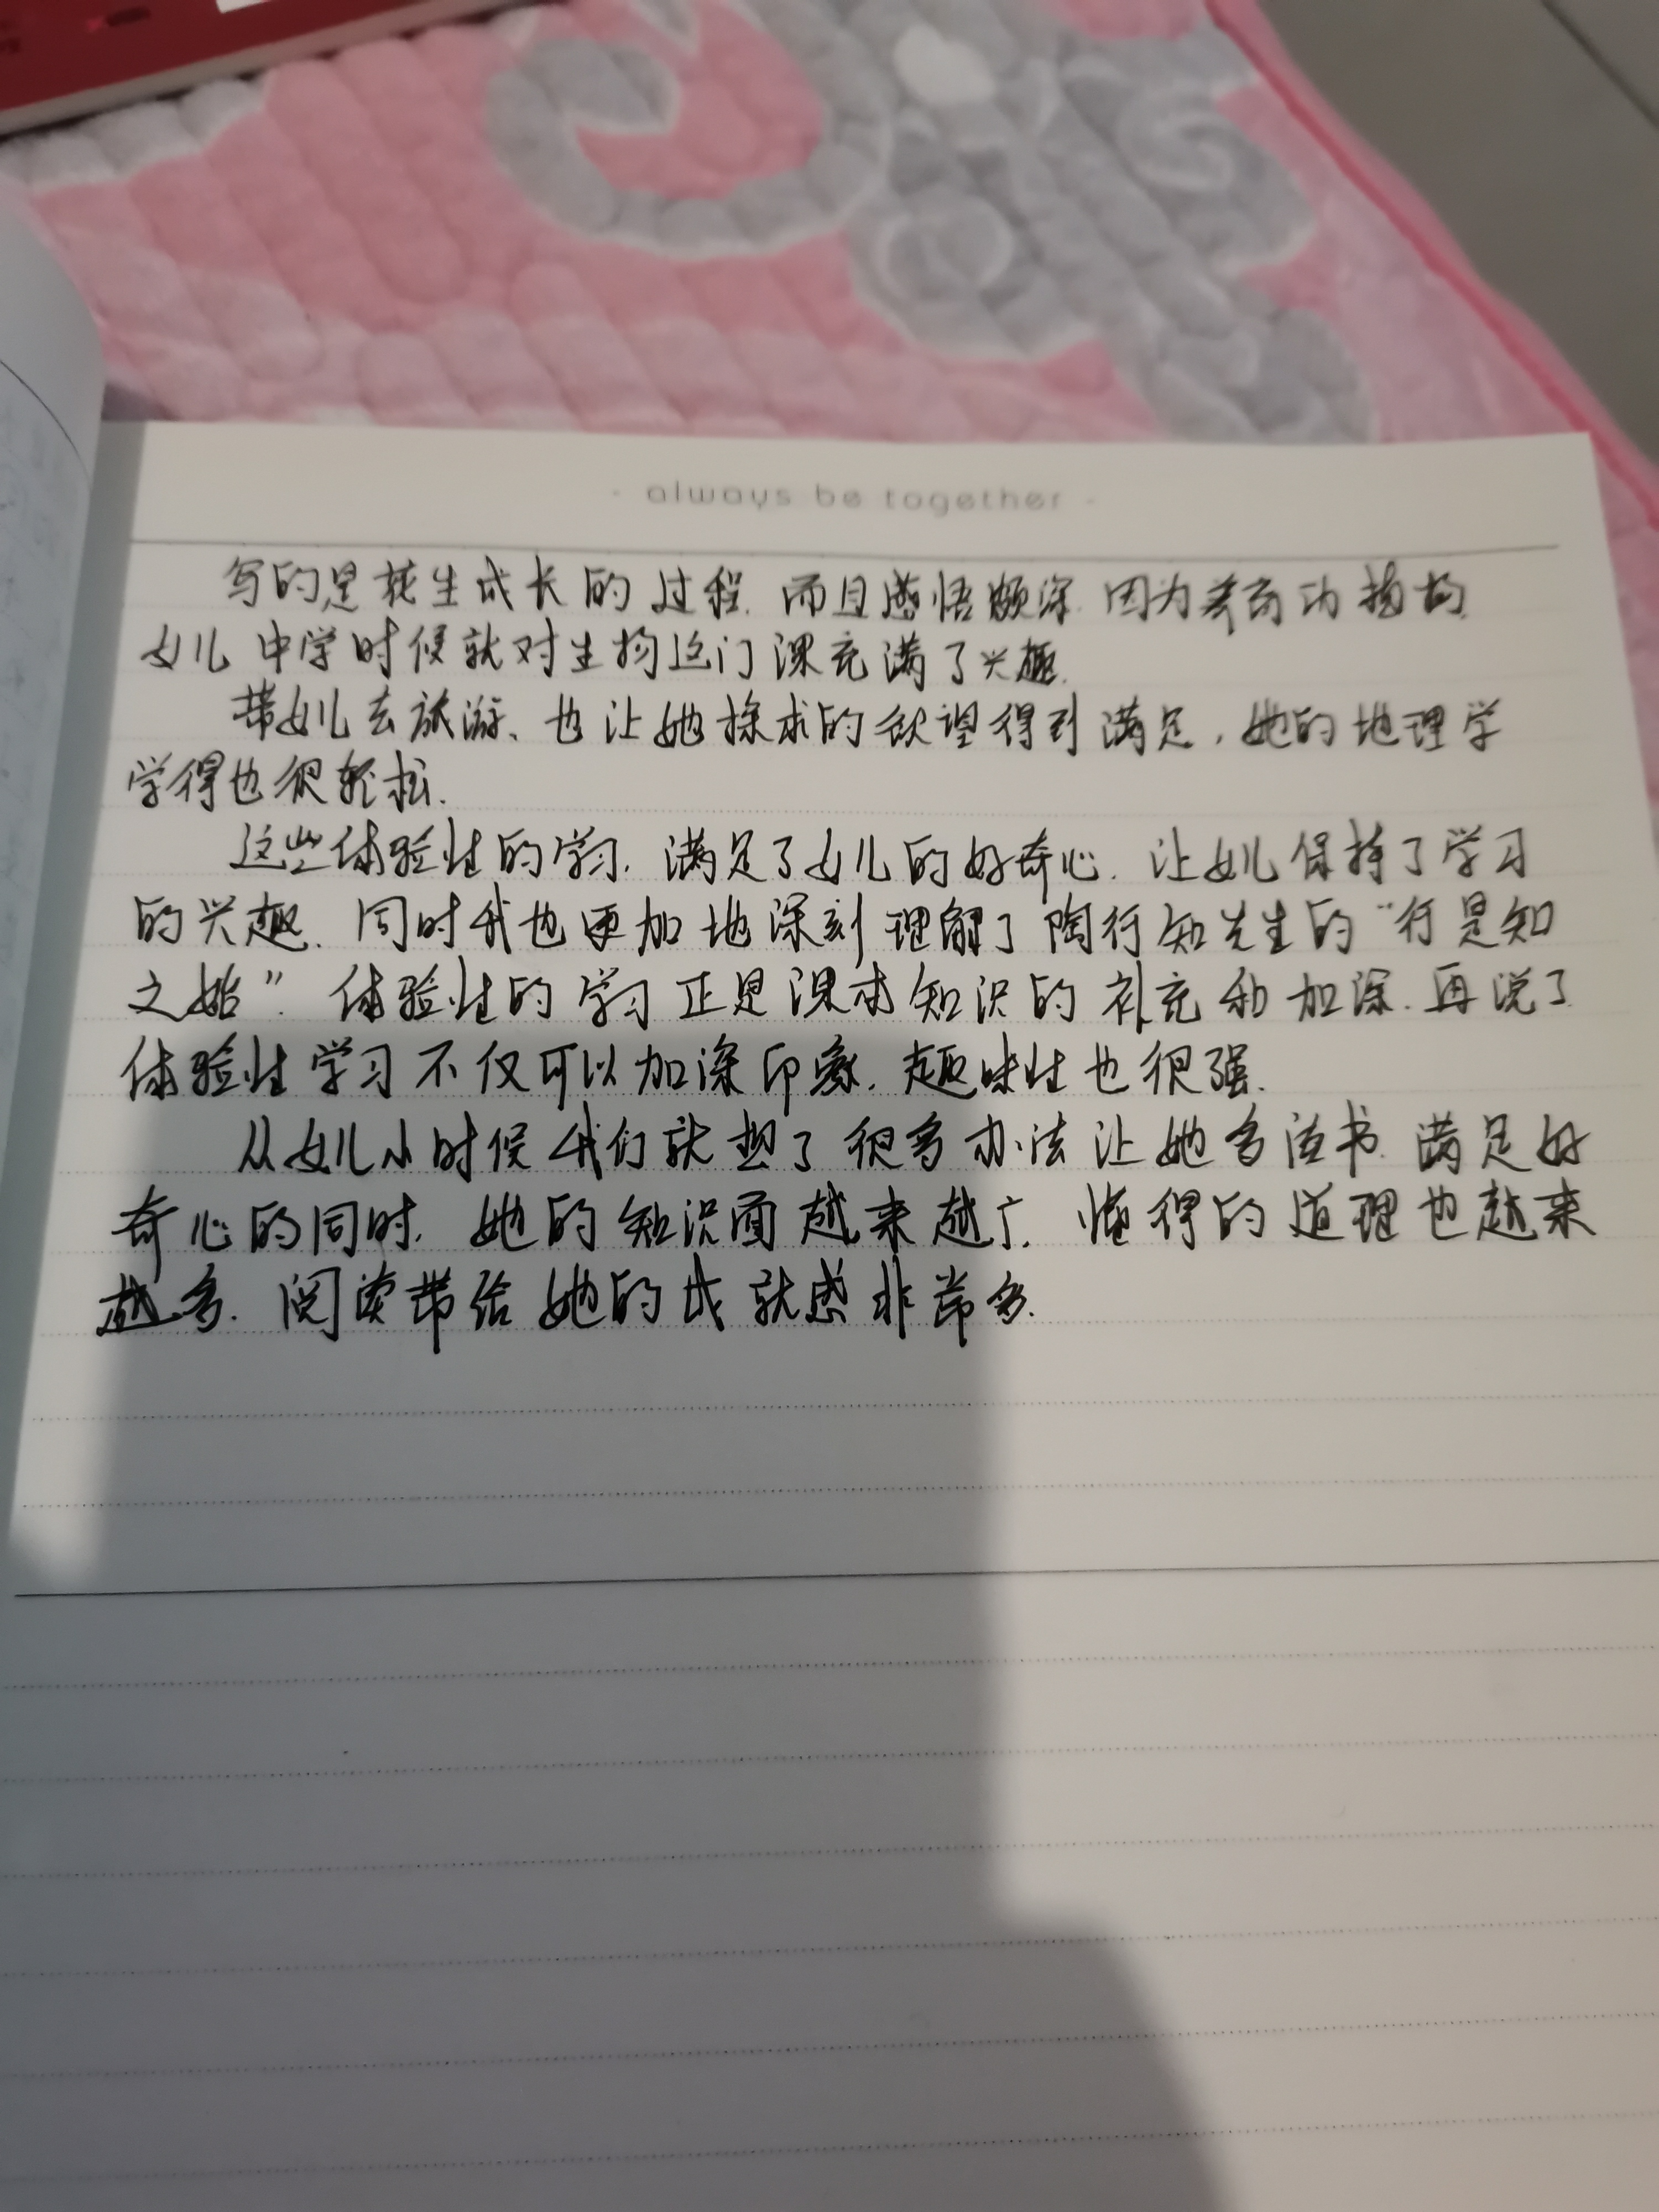 - always be together -
写的是花生成长的过程.而且感悟颇深.因为养
女儿中学时候就对生物这门课充满了兴趣.
带女儿去旅游、也让她探求的欲望得到满足,她的地理学
学得也很轻松.
这些体验性的学习.满足了女儿的好奇心.让女儿保持了学习
的兴趣.同时我也更加地深刻理解了陶行知先生的“行是知
之始”.体验性的学习正是课本知识的补充和加深.再说了
体验性学习不仅可以加深印象.趣味性也很强.
从女儿小时候我们就想了很多办法让她多读书.满足好
奇心的同时.她的知识面越来越广.懂得的道理也越来
越多.阅读带给她的成就感非常多.